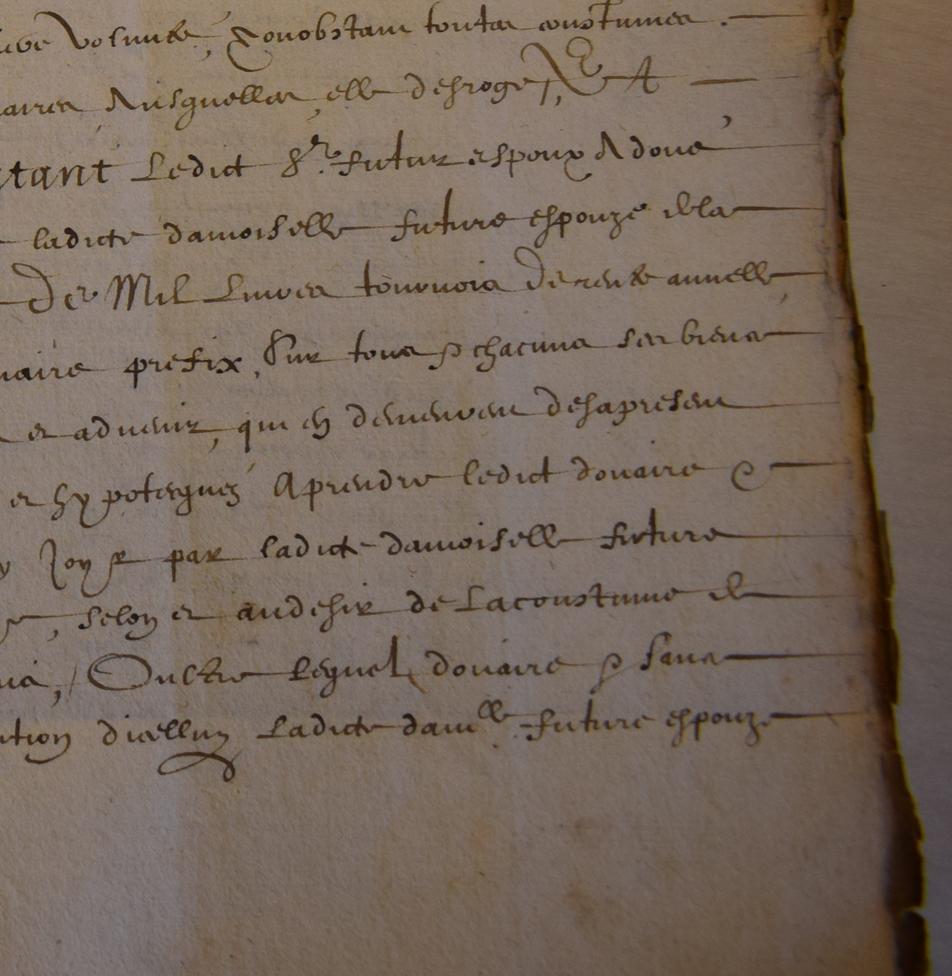 volunte, Nonobstant toutes coustumes .
aires Ausquelles elle desroge, Et A
tant Ledict Sr. futur espoux A doué
ladicte damoiselle future espouze de la
De Mil Livres tournois De rente annuelle,
uaire prefix, Sur tous & chacuns ses biens
et advenir, qui en demeurent desapresent
et hypotequez A prendre ledict douaire &
Joyr par ladicte damoiselle future
, selon et au desir de La coustume de
, Oultre Lequel douaire & sans
ution dicelluy Ladicte damlle future espouze